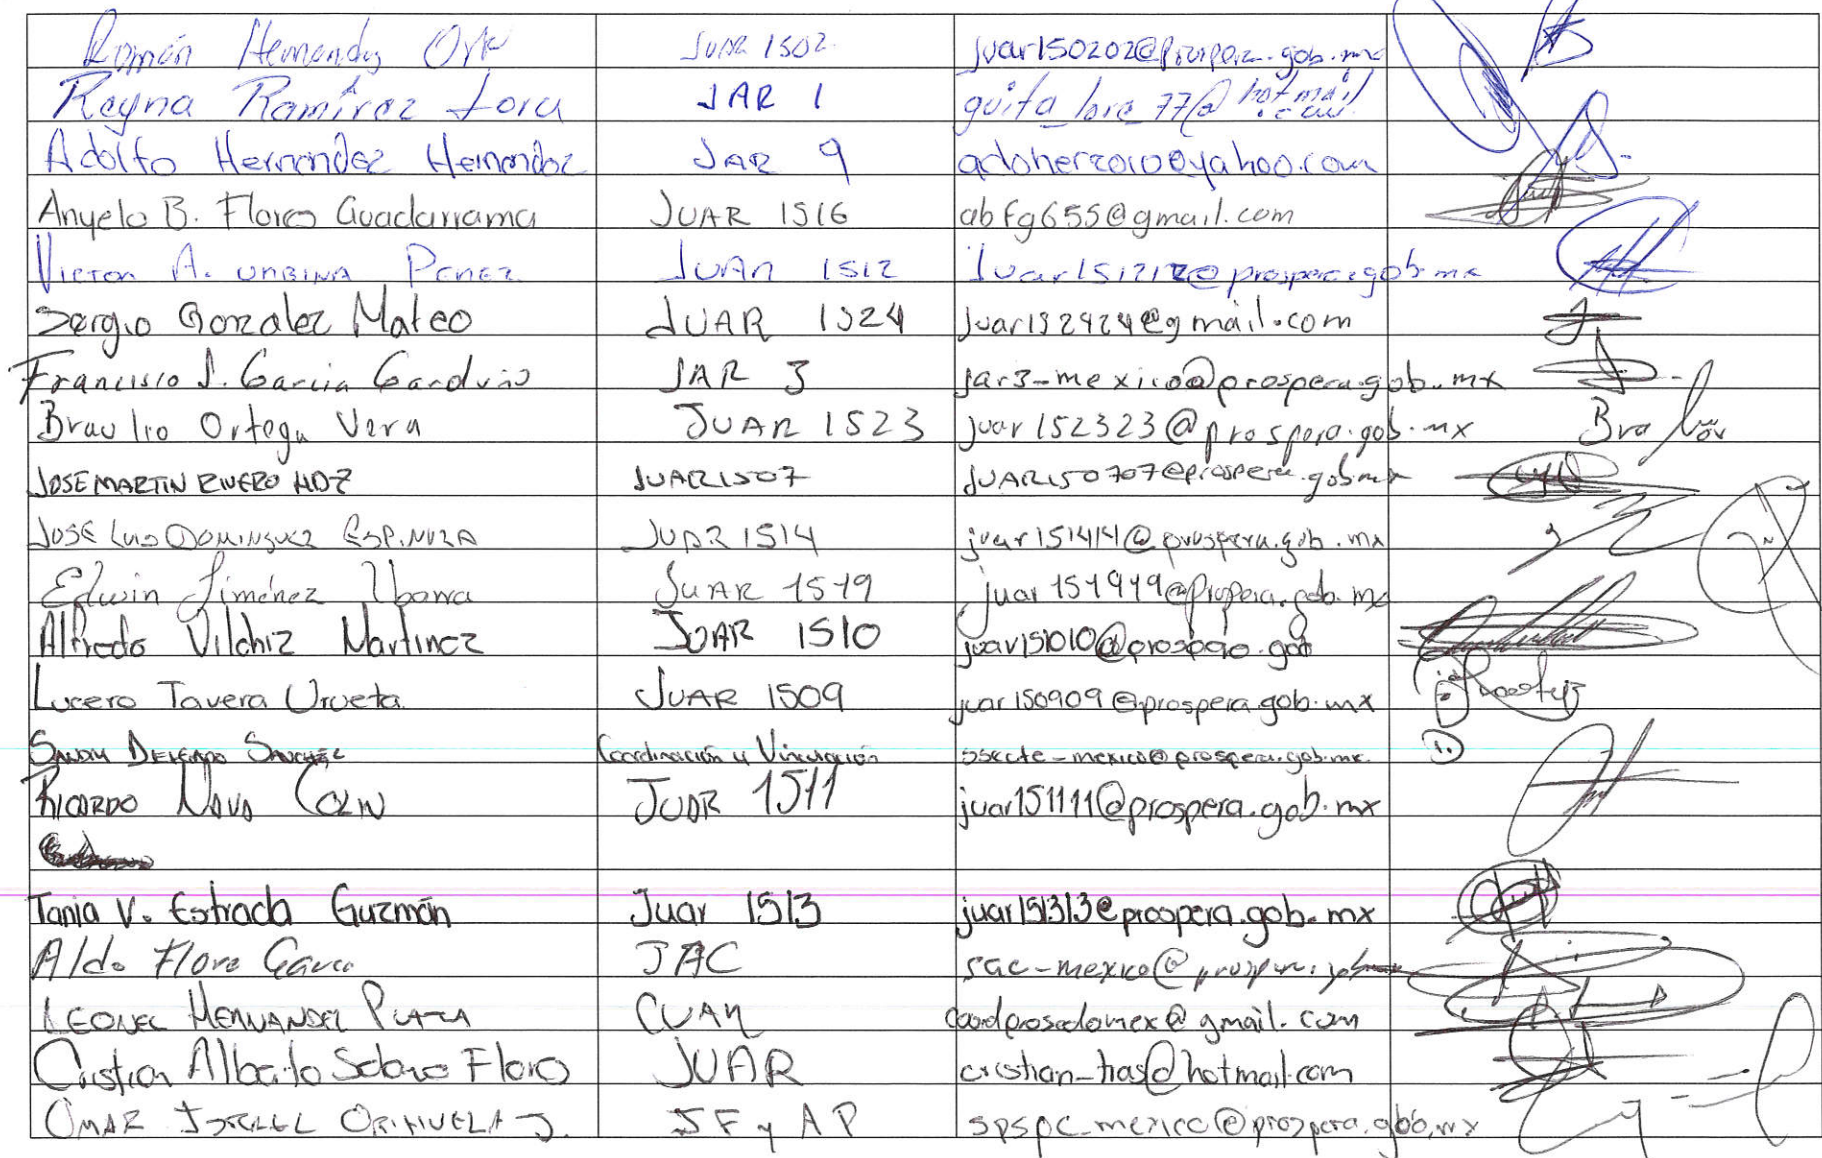 Román Hernandez Ort JUAR 1502 juar150202@prospera.gob.mx
Reyna Ramírez Lora JAR 1 guita_lora_77@hotmail.com
Adolfo Hernandez Hernandez JAR 9 adoherzo10@yahoo.com
Anyelo B. Flores Guadarrama JUAR 1516 abfg655@gmail.com
Victor A. Urbina Perez JUAR 1512 Juar151212@prospera.gob.mx
Sergio Gonzalez Mateo JUAR 1524 juar152424@gmail.com
Francisco J. Garcia Garduño JAR 3 jar3-mexico@prospera.gob.mx
Braulio Ortega Vera JUAR 1523 juar152323@prospera.gob.mx
JOSE MARTIN RIVERO HDZ JUAR1507 JUAR150707@prospera.gob.mx
JOSE LUIS DOMINGUEZ ESPINOZA JUAR 1514 juar151414@prospera.gob.mx
Edwin Jiménez Ibarra JUAR 1519 juar151919@Propera.gob.mx
Alfredo Vilchiz Martinez JUAR 1510 juar151010@prospera.gob
Lucero Tavera Urueta. JUAR 1509 juar150909@prospera.gob.mx
SANDRA DELGADO SANCHEZ Coordinación y Vinculación @prospera.gob.mx
RICARDO NAVA COLIN JUAR 1511 juar151111@prospera.gob.mx
Tania V. Estrada Guzmán Juar 1513 juar151313@prospera.gob.mx
Aldo Flores Garcia JAC sac-mexico@prospera.gob
LEONEL HERNANDEZ PLATA CUAR coordprosedomex@gmail.com
Cristian Alberto Solano Flores JUAR cristian-tras@hotmail.com
OMAR ISRAEL ORIHUELA J. JF y AP spspc_mexico@prospera.gob.mx